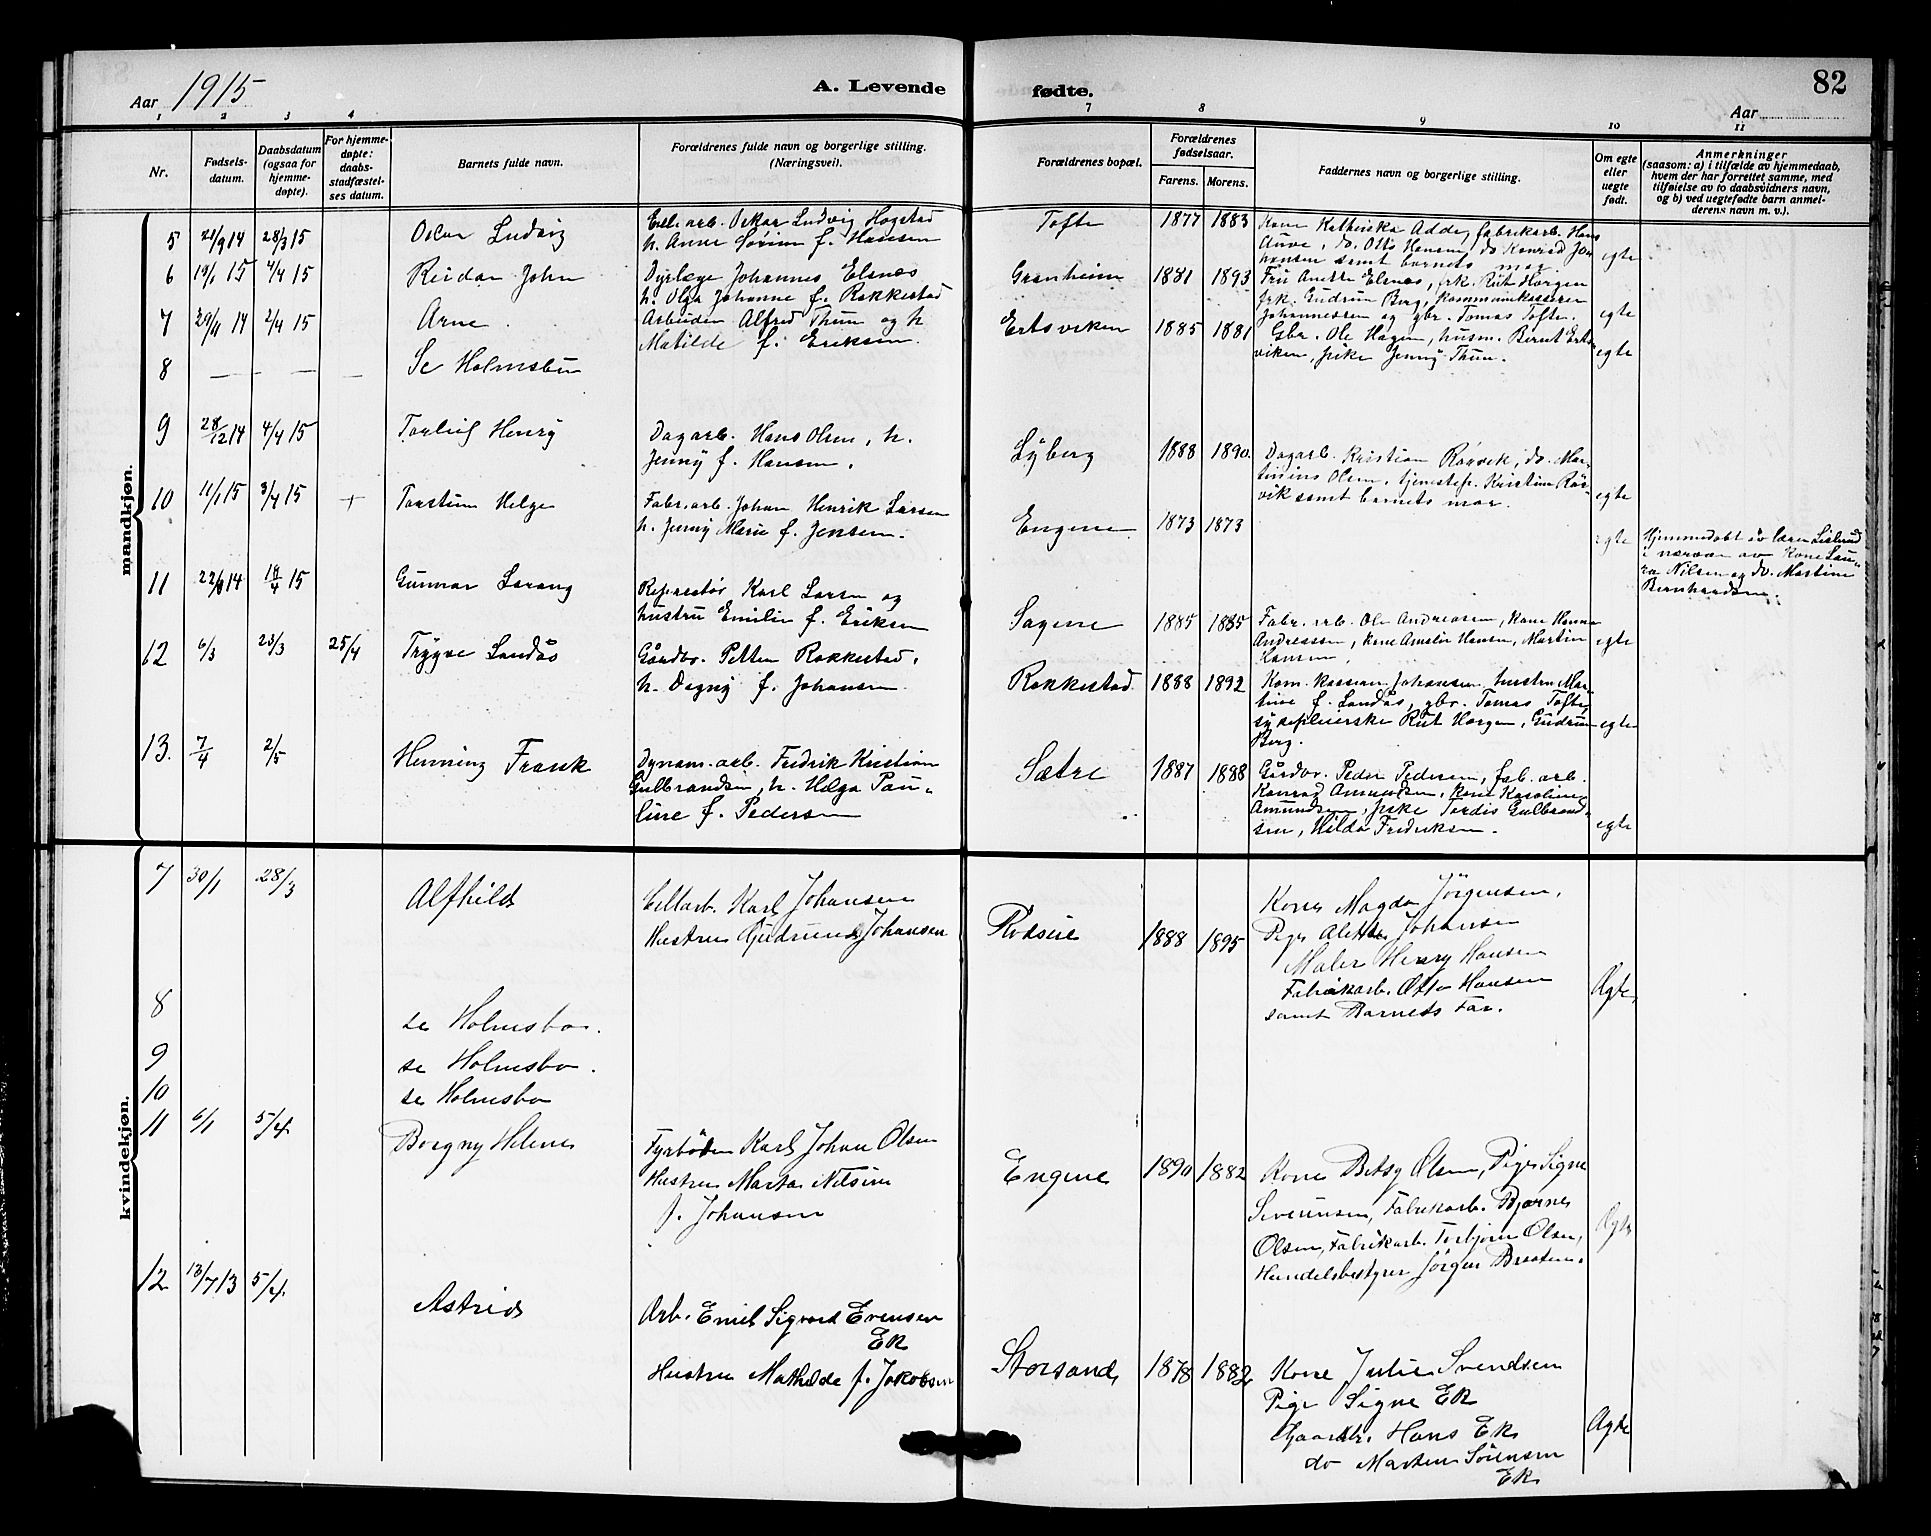 Aar 1915
A. Levende fødte.
82
Aar
1 2 3 4 7 8 9 10 11
Nr.
Fødsels-
datum.
Daabsdatum
(ogsaa for
hjemme-
døpte).
For hjemme-
døpte:
daabs-
stadfæstel-
ses datum.
Barnets fulde navn.
Forældrenes fulde navn og borgerlige stilling.
(Næringsvei).
Forældrenes bopæl.
Forældrenes
fødselsaar.
Farens. Morens.
Faddernes navn og borgerlige stilling.
Om egte
eller
uegte
født.
Anmerkninger
(saasom: a) i tilfælde av hjemmedaab,
hvem der har forrettet samme, med
tilføielse av to daabsvidners navn,
og b) ved uegtefødte barn anmel-
derens navn m. v.).
mandkjøn.
5 21/9 14 28/3 15 Oskar Ludvig
arb. Oskar Ludvig Hogstad
h. Anna Sørine f. Hansen
Tofte 1877 1883
Kone Kathinka Adde, fabrikarb. Hans
do. Otto Hansen, do Konrad Jo-
hansen samt barnets mor.
egte
6 19/1 15 4/4 15 Reidar John
Dyrlæge Johannes Elsnes
h. Olga Johanne f. Rokkestad
Granheim 1881 1893
Fru Elsnes, frk. Rut Horgen
frk. Gudrun Berg, kommunekasserer
Johannessen og gbr. Tomas Tofte.
egte
7 29/11 14 2/4 15 Arne
Arbeider Alfred Thun og h
Matilde f. Eriksen.
Ertsviken 1885 1881
Gbr. Ole Hagen, husm. Bernt Erts-
viken, pike Jenny Thun.
egte
8 — — — — Se Holmsbu
9 28/12 14 4/4 15 Torleif Henry
Dagarb. Hans Olsen, h.
Jenny f. Hansen.
Lyberg 1888 1890
Dagarb. Kristian Rørvik, do. Mar-
tinius Olsen, tjenestep. Kristine Rør-
vik samt barnets mor.
egte
10 11/1 15 3/4 15 + Torstein Helge
Fabr. arb. Johan Henrik Larsen
h. Jenny Marie f. Jensen.
Engene 1873 1873
egte
Hjemmedøbt av lærer
i nærvær av Kone Lau-
ra Nilsen og do. Martine
Bernhardsen.
11 22/9 14 18/4 15 Gunnar
Reperatør Karl Larsen og
hustru Emilie f. Eriksen
Sagene 1885 1885
Fabr. arb. Ole Andreasen, Kone Hanna
Andreassen, kone Amalie Hansen, Martin
Hansen.
egte
12 6/3 23/3 25/4 Trygve Landås
Gårdbr. Petter Rokkestad,
h. Dagny f. Johansen.
Rokkestad 1888 1892
Kom. kasserer Johansen, hustru Mar-
tine f. Landås, gbr. Tomas Tofte,
sykepleierske Rut Horgen, Gudrun
Berg.
egte
13. 7/4 2/5 Henning Frank
Dynam. arb. Fredrik Kristian
Gulbrandsen, h. Helga Pau-
line f. Pedersen
Sætre 1887 1888
Gårdbr. Peder Pedersen, fab. arb.
Konrad Amundsen, kone Karoline
Amundsen, pike Tordis Gulbrand-
sen, Hilda Fredriksen.
egte
kvindekjøn.
7 30/1 28/3 Alfhild
Cellarb. Karl Johansen
Hustru Gudrun Johansen
Rødseie 1888 1895
Kone Magda Jørgensen,
Pige Alette Johansen
Maler Henry Hansen
Fabrikarb. Otto Hansen
samt Barnets Far.
Ægte
8 se Holmsbo.
9 se Holmsbo.
10 se Holmsbo
11 6/1 5/4 Borgny Helene
Fyrbøder Karl Johan Olsen
Hustru Marta Nilsine
f. Johansen
Engene 1890 1882
Kone Betsy Olsen, Pige Signe
Severinsen, Fabrikarb. Bjarne
Olsen, Fabrikarb. Torbjørn Olsen,
Handelsbestyrer Jørgen Braaten.
Ægte
12 13/7 13 5/4 Astrid
Arb. Emil Sigvard Evensen
Ek
Hustru Mathilde f. Jakobsen
Storsand 1878 1882
Kone Julie Svendsen
Pige Signe Ek
Gaardbr. Hans Ek
do Marten Sørensen
Ek
Ægte